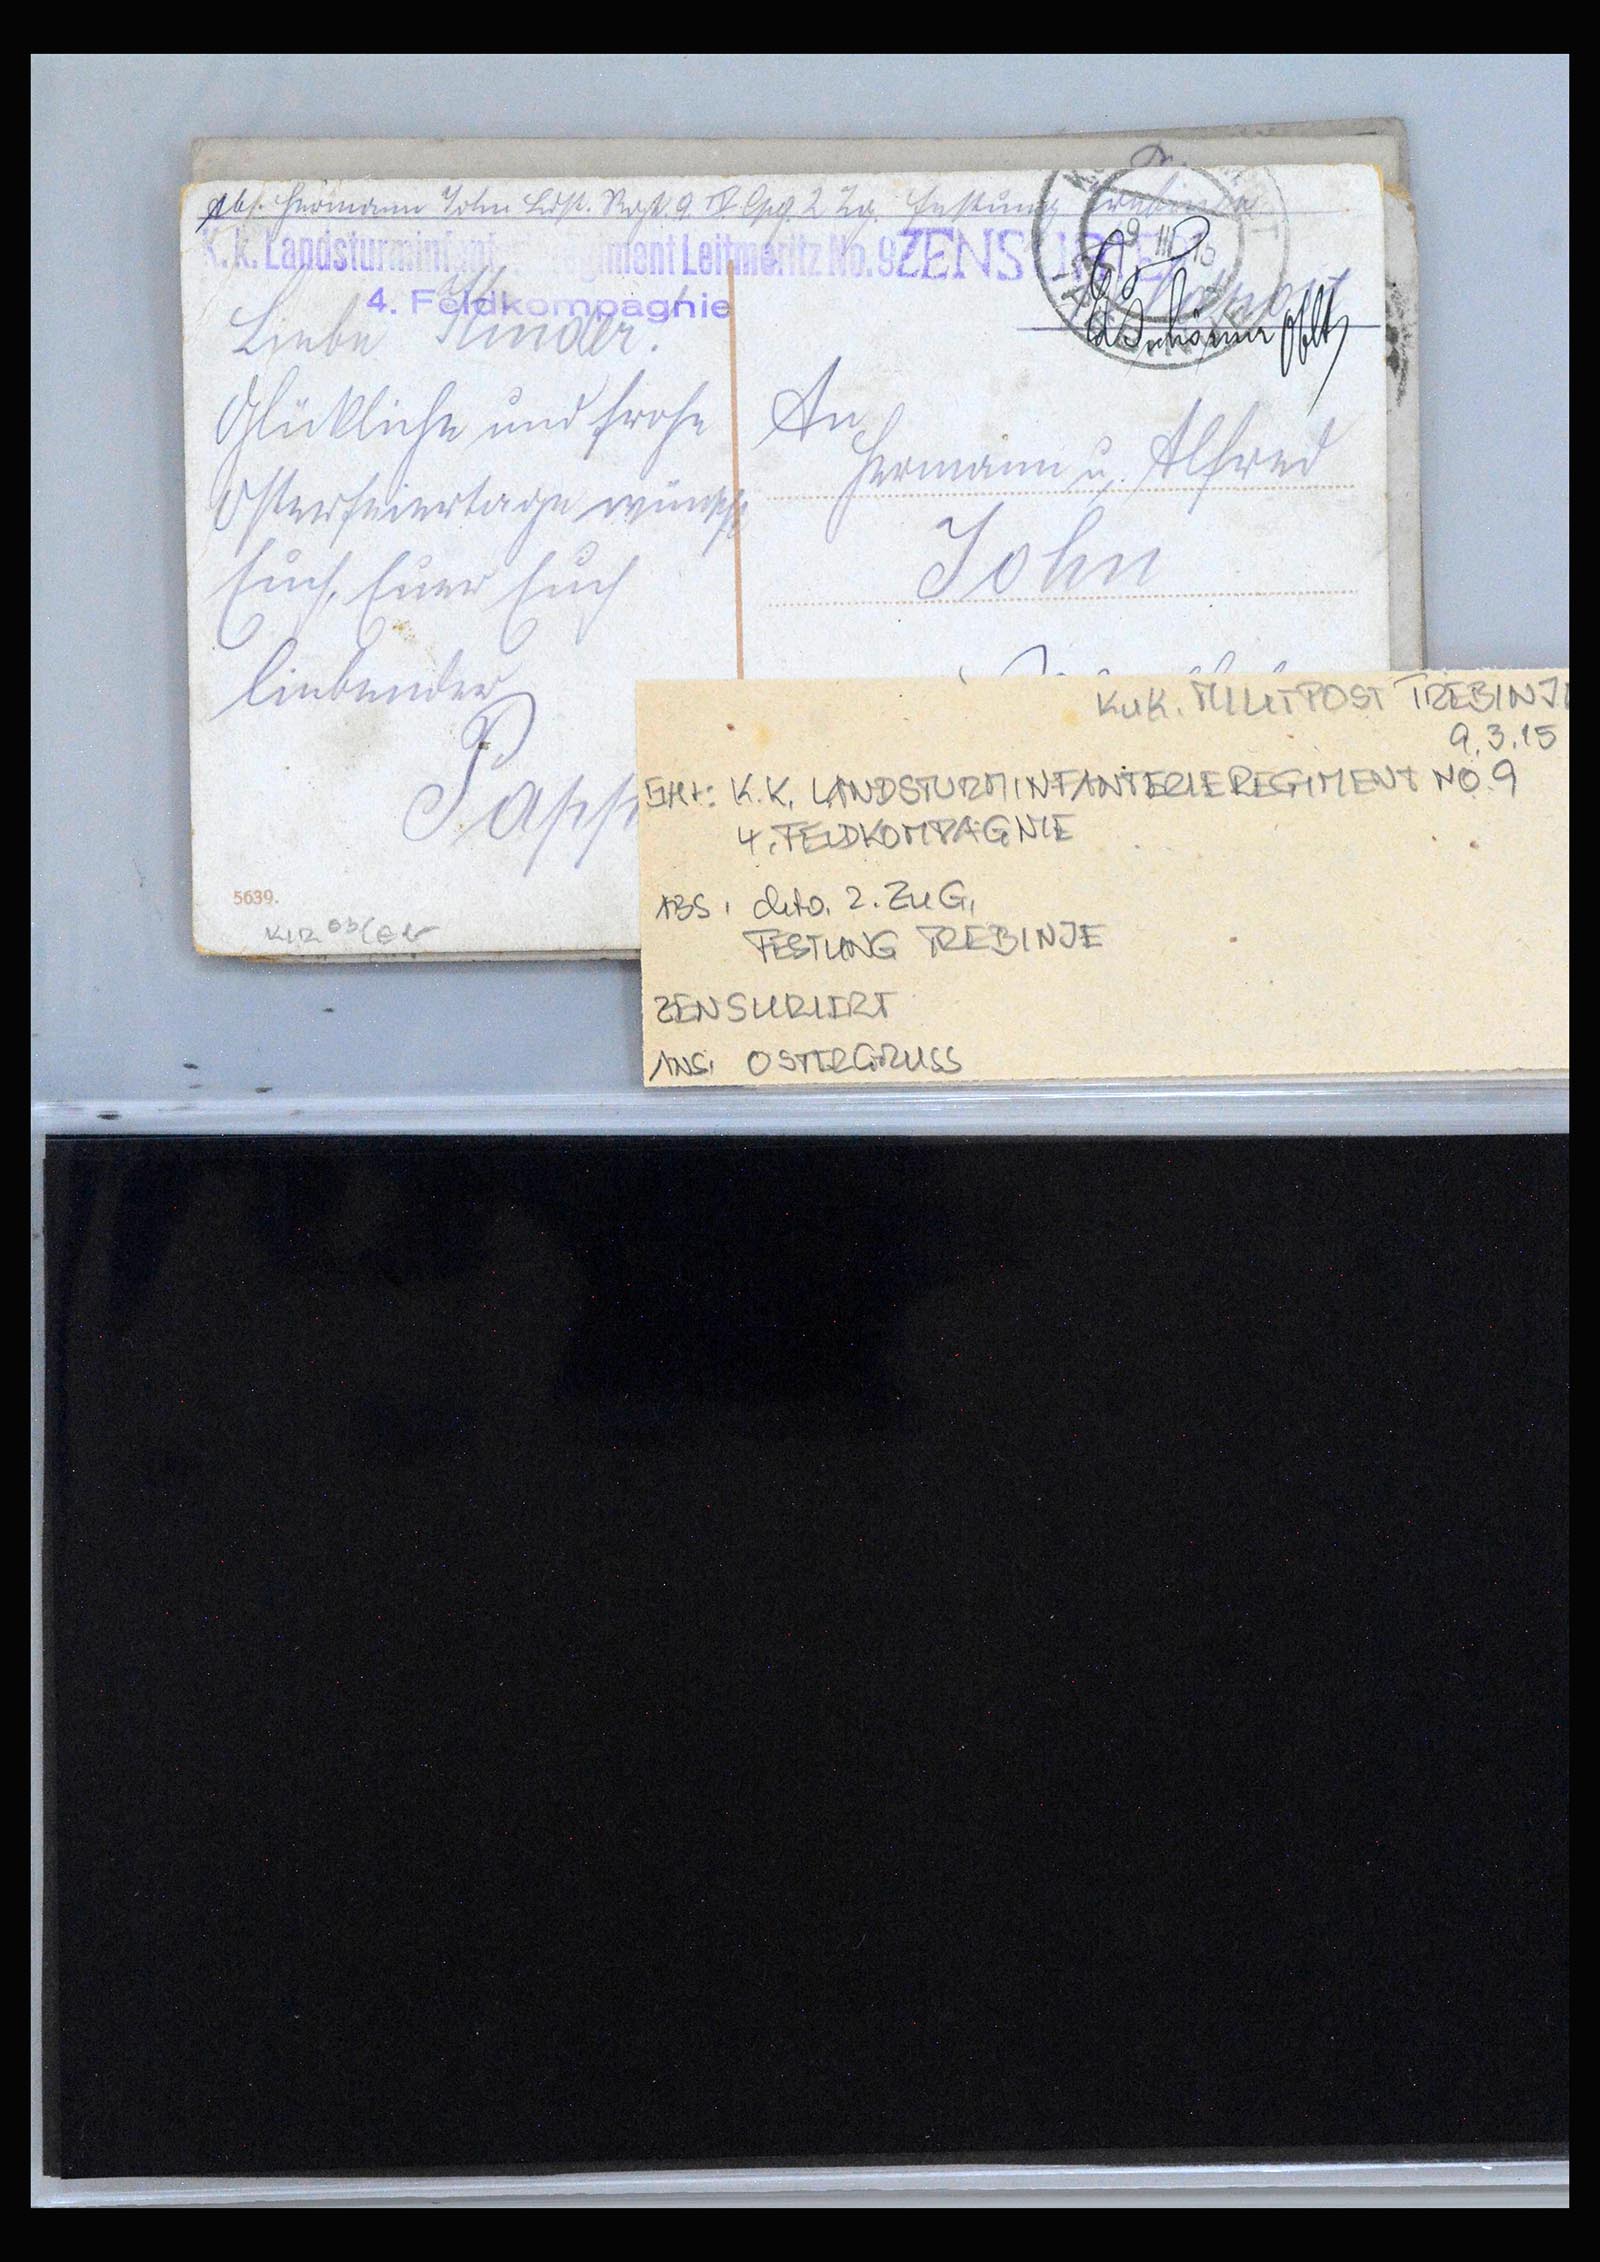 Abs. Hermann John Ldst. Rgt. 9 IV Cpg. 2 Zg. Festung Trebinje
K. k. Landsturminfanterieregiment Leitmeritz No. 9
ZENSURIERT
4. Feldkompagnie
9 III 15
Oblt
Liebe Kinder!
Glückliche und frohe
Osterfeiertage wünscht
Euch, Euer Euch
liebender
Papa
An
Hermann u. Alfred
John
5639.
K.u.K. MILITPOST TREBINJE
9.3.15
K.K. LANDSTURMINFANTERIEREGIMENT NO. 9
4. FELDKOMPAGNIE
ABS: dito. 2. ZUG,
FESTUNG TREBINJE
ZENSURIERT
ANS: OSTERGRUSS